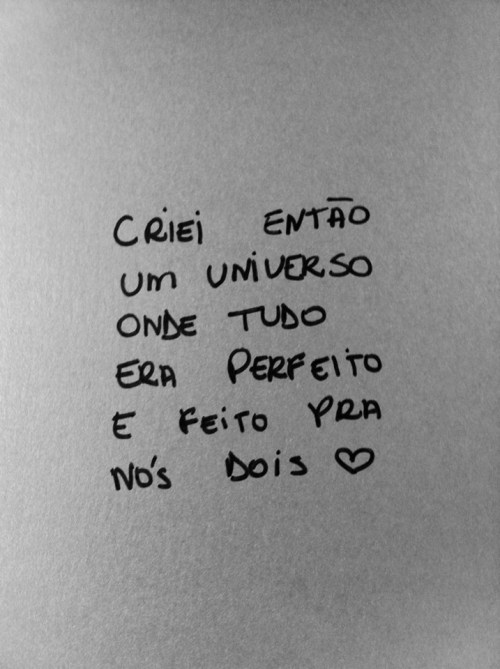 CRIEI ENTÃO
UM UNIVERSO
ONDE TUDO
ERA PERFEITO
E FEITO PRA
NÓS DOIS ♡